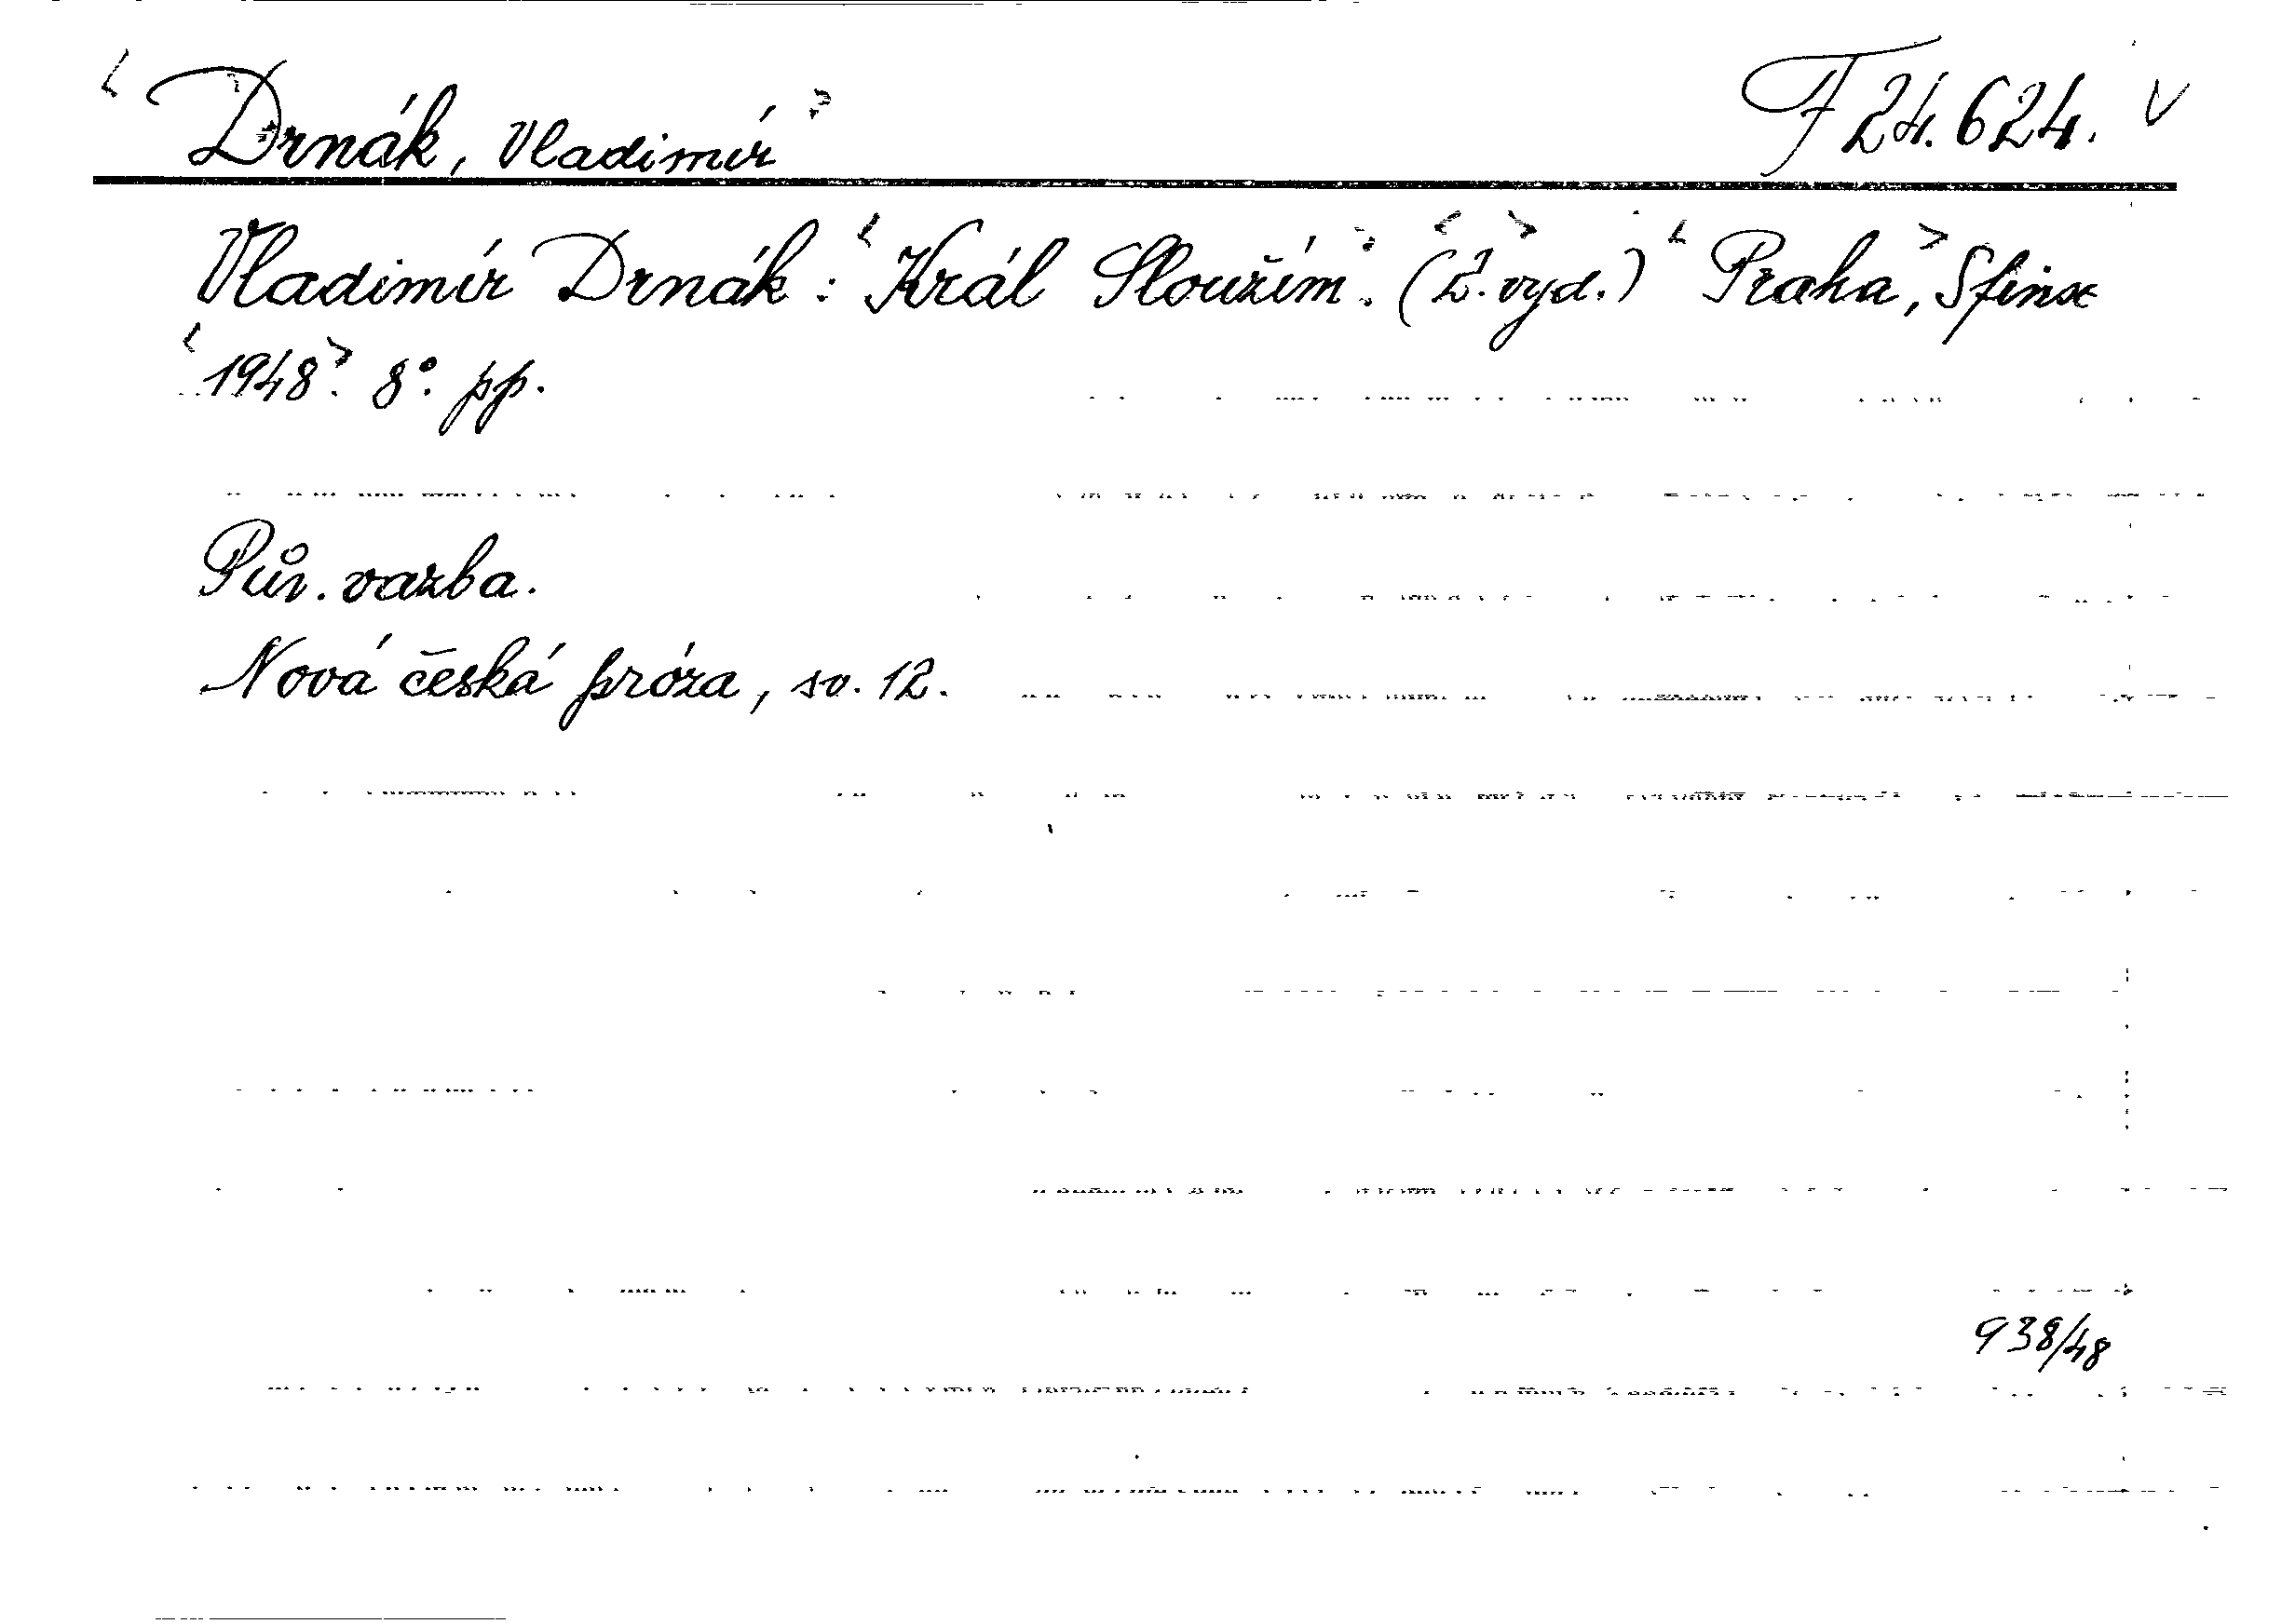 Drnák, Vladimír F 24.624. V
Vladimír Drnák: Král Sloužím. (1. vyd.) Praha, Sfinx
1948. 8°. pp.
Pův. vazba.
Nová česká próza, sv. 12.
938/48